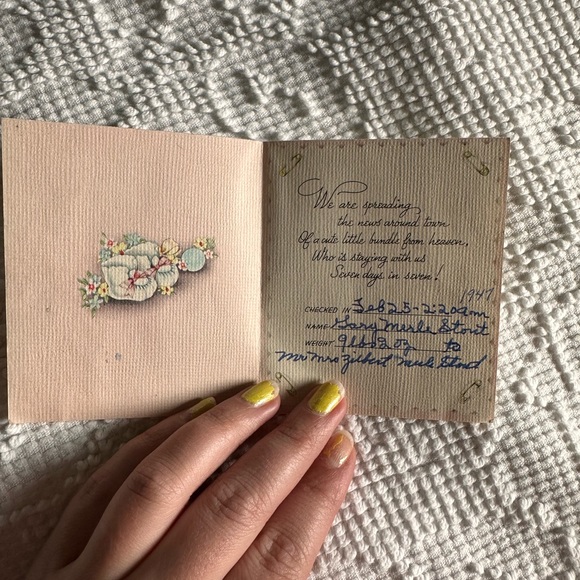 We are spreading
the news around town
Of a cute little bundle from heaven,
Who is staying with us
Seven days in seven!
1947
CHECKED IN Feb 25 - 2:20 am
NAME Gary Merle Stout
WEIGHT 9 lbs 2 oz to
Mr Mrs Zilbert Merle Stout